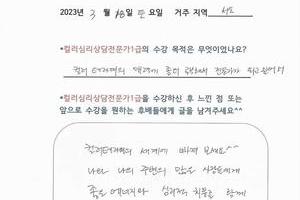 2023년 3 월 18일 토 요일 거주 지역 서울
•컬러심리상담전문가1급의 수강 목적은 무엇이었나요?
컬러 테라피의 매력에 좀더 전문가가 되고 싶어서
•컬러심리상담전문가1급을 수강하신 후 느낀 점 또는
앞으로 수강을 원하는 후배들에게 글을 남겨주세요^^
컬러테라피의 세계에 빠져 보세요^^
나와 나의 주변의 많은 사람들에게
좋은 에너지와 심리적 치유를 함께